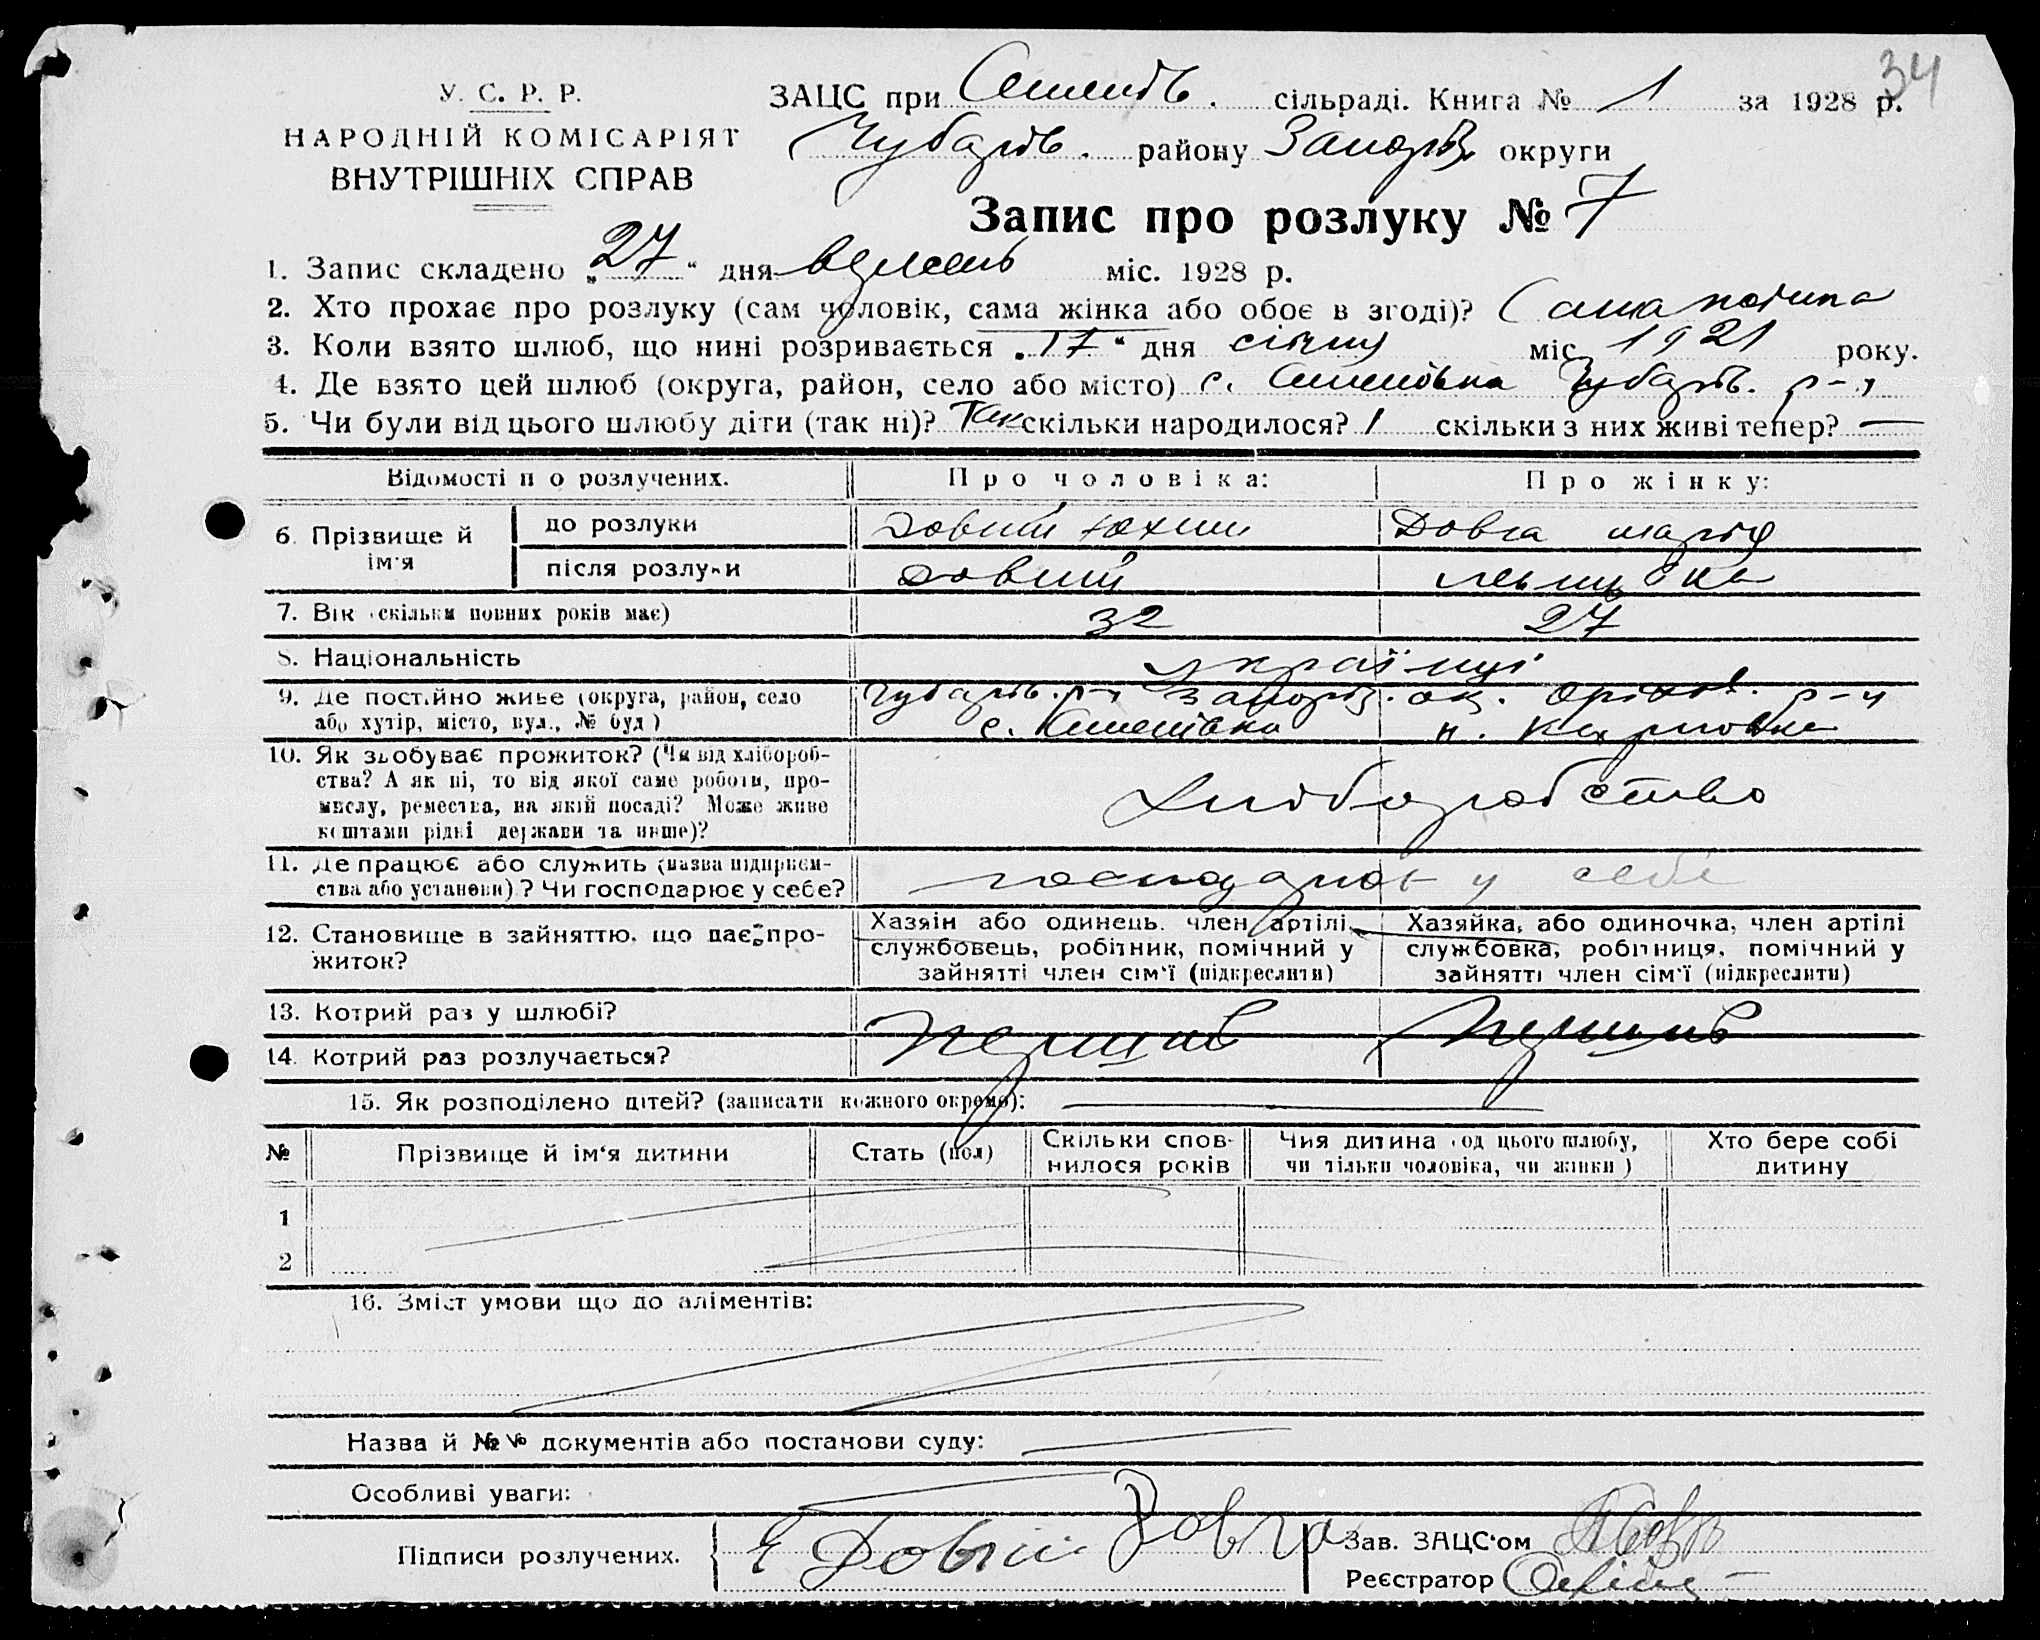 34
У. С. Р. Р.
НАРОДНІЙ КОМІСАРІЯТ
ВНУТРІШНІХ СПРАВ
ЗАЦС при Семенів. сільраді. Книга № 1 за 1928 р.
Чубарів. району Запоріз. округи
Запис про розлуку № 7
1. Запис складено „27“ дня міс. 1928 р.
2. Хто прохає про розлуку (сам чоловік, сама жінка або обоє в згоді)? Сама
3. Коли взято шлюб, що нині розривається „17“ дня січня міс. 1921 року.
4. Де взято цей шлюб (округа, район, село або місто) с. Семенівка Чубарів. р-н
5. Чи були від цього шлюбу діти (так ні)? Так скільки народилося? 1 скільки з них живі тепер? —
Відомості про розлучених. Про чоловіка: Про жінку:
6. Прізвище й ім'я до розлуки Довгий Юхим Довга Марія
після розлуки Довгий
7. Вік (скільки повних років має) 32 27
8. Національність українці
9. Де постійно живе (округа, район, село або хутір, місто, вул., № буд.) Чубарів. р-н Запоріз. ок. Оріхів. р-н
с. Семенівка
10. Як здобуває прожиток? (Чи від хлібороб-
ства? А як ні, то від якої саме роботи, про-
мислу, ремества, на якій посаді? Може живе
коштами рідні держави та инше)? Хліборобство
11. Де працює або служить (назва підприєм-
ства або установи)? Чи господарює у себе? господарює у себе
12. Становище в зайняттю, що дає про-
житок?
Хазяін або одинець, член артілі, Хазяйка, або одиночка, член артілі
службовець, робітник, помічний у службовка, робітниця, помічний у
зайнятті член сім'ї (підкреслити) зайнятті член сім'ї (підкреслити)
13. Котрий раз у шлюбі?
14. Котрий раз розлучається?
15. Як розподілено дітей? (записати кожного окремо): —
№ Прізвище й ім'я дитини Стать (пол) Скільки спов-
нилося років Чия дитина (од цього шлюбу,
чи тільки чоловіка, чи жінки) Хто бере собі
дитину
1
2
16. Зміст умови що до аліментів:
Назва й №№ документів або постанови суду: —
Особливі уваги:
Підписи розлучених. Довгий Довга
Зав. ЗАЦС'ом
Реєстратор